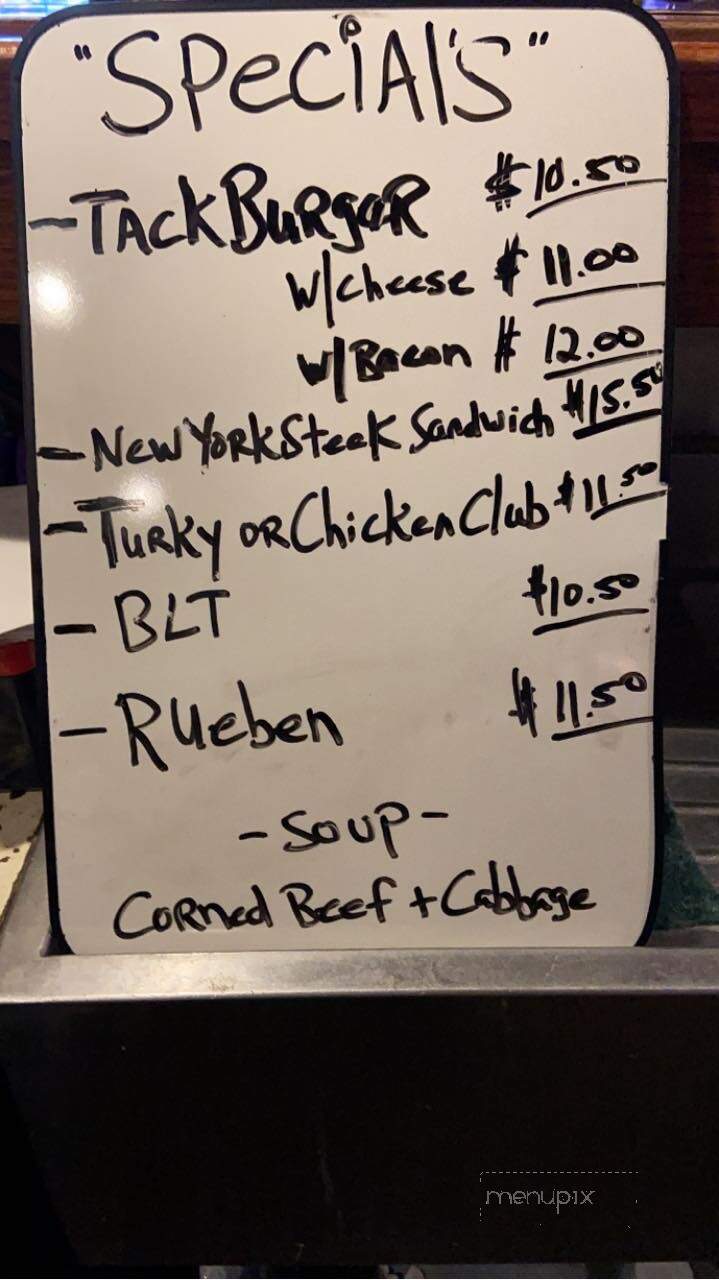 "SPeCiAl'S"
- TACKBURgaR $10.50
w/cheese $ 11.00
w/Bacon $ 12.00
- New YorkSteek Sandwich $15.50
- Turky OR Chicken Club $11.50
- BLT $10.50
- Rueben $11.50
- Soup -
Corned Beef + Cabbage
menupix